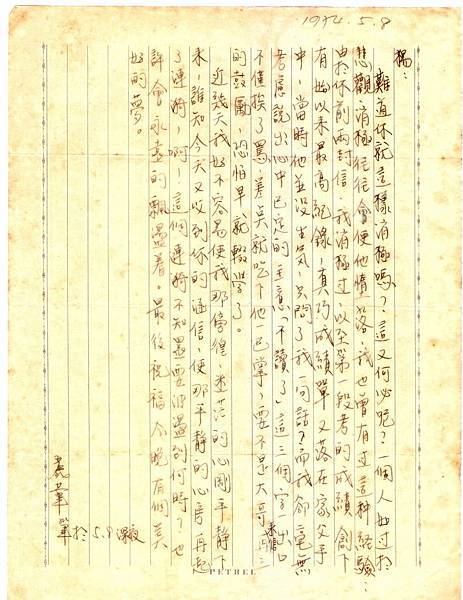 1974.5.8
楊:
難道你就這樣消極嗎?這又何必呢?一個人如过於
悲觀、消極往往會使他墮落,我也曾有过这种經驗:
由於你前兩封信,我消極过,以至第一段考的成績創下
有始以来最高紀錄,真巧成績單又落在家父手
中,當時他並沒生氣,只問了我一句話?而我卻毫無
考慮說出心中已定的主意「不讀了」這三個字出口
不僅挨了罵,差臭就吃下他一巴掌,要不是大哥来信
的鼓勵,恐怕早就輟学了。
近幾天我好不容易使我那徬徨、迷茫的心剛平静下
来,誰知今天又收到你的通信,使那平静的心房再起
了漣漪,啊!這個漣漪不知還要泪盪到何時?也
許會永遠的飄盪着。最後祝福今晚有個美
好的夢。
筆於5.8深夜
PETREL